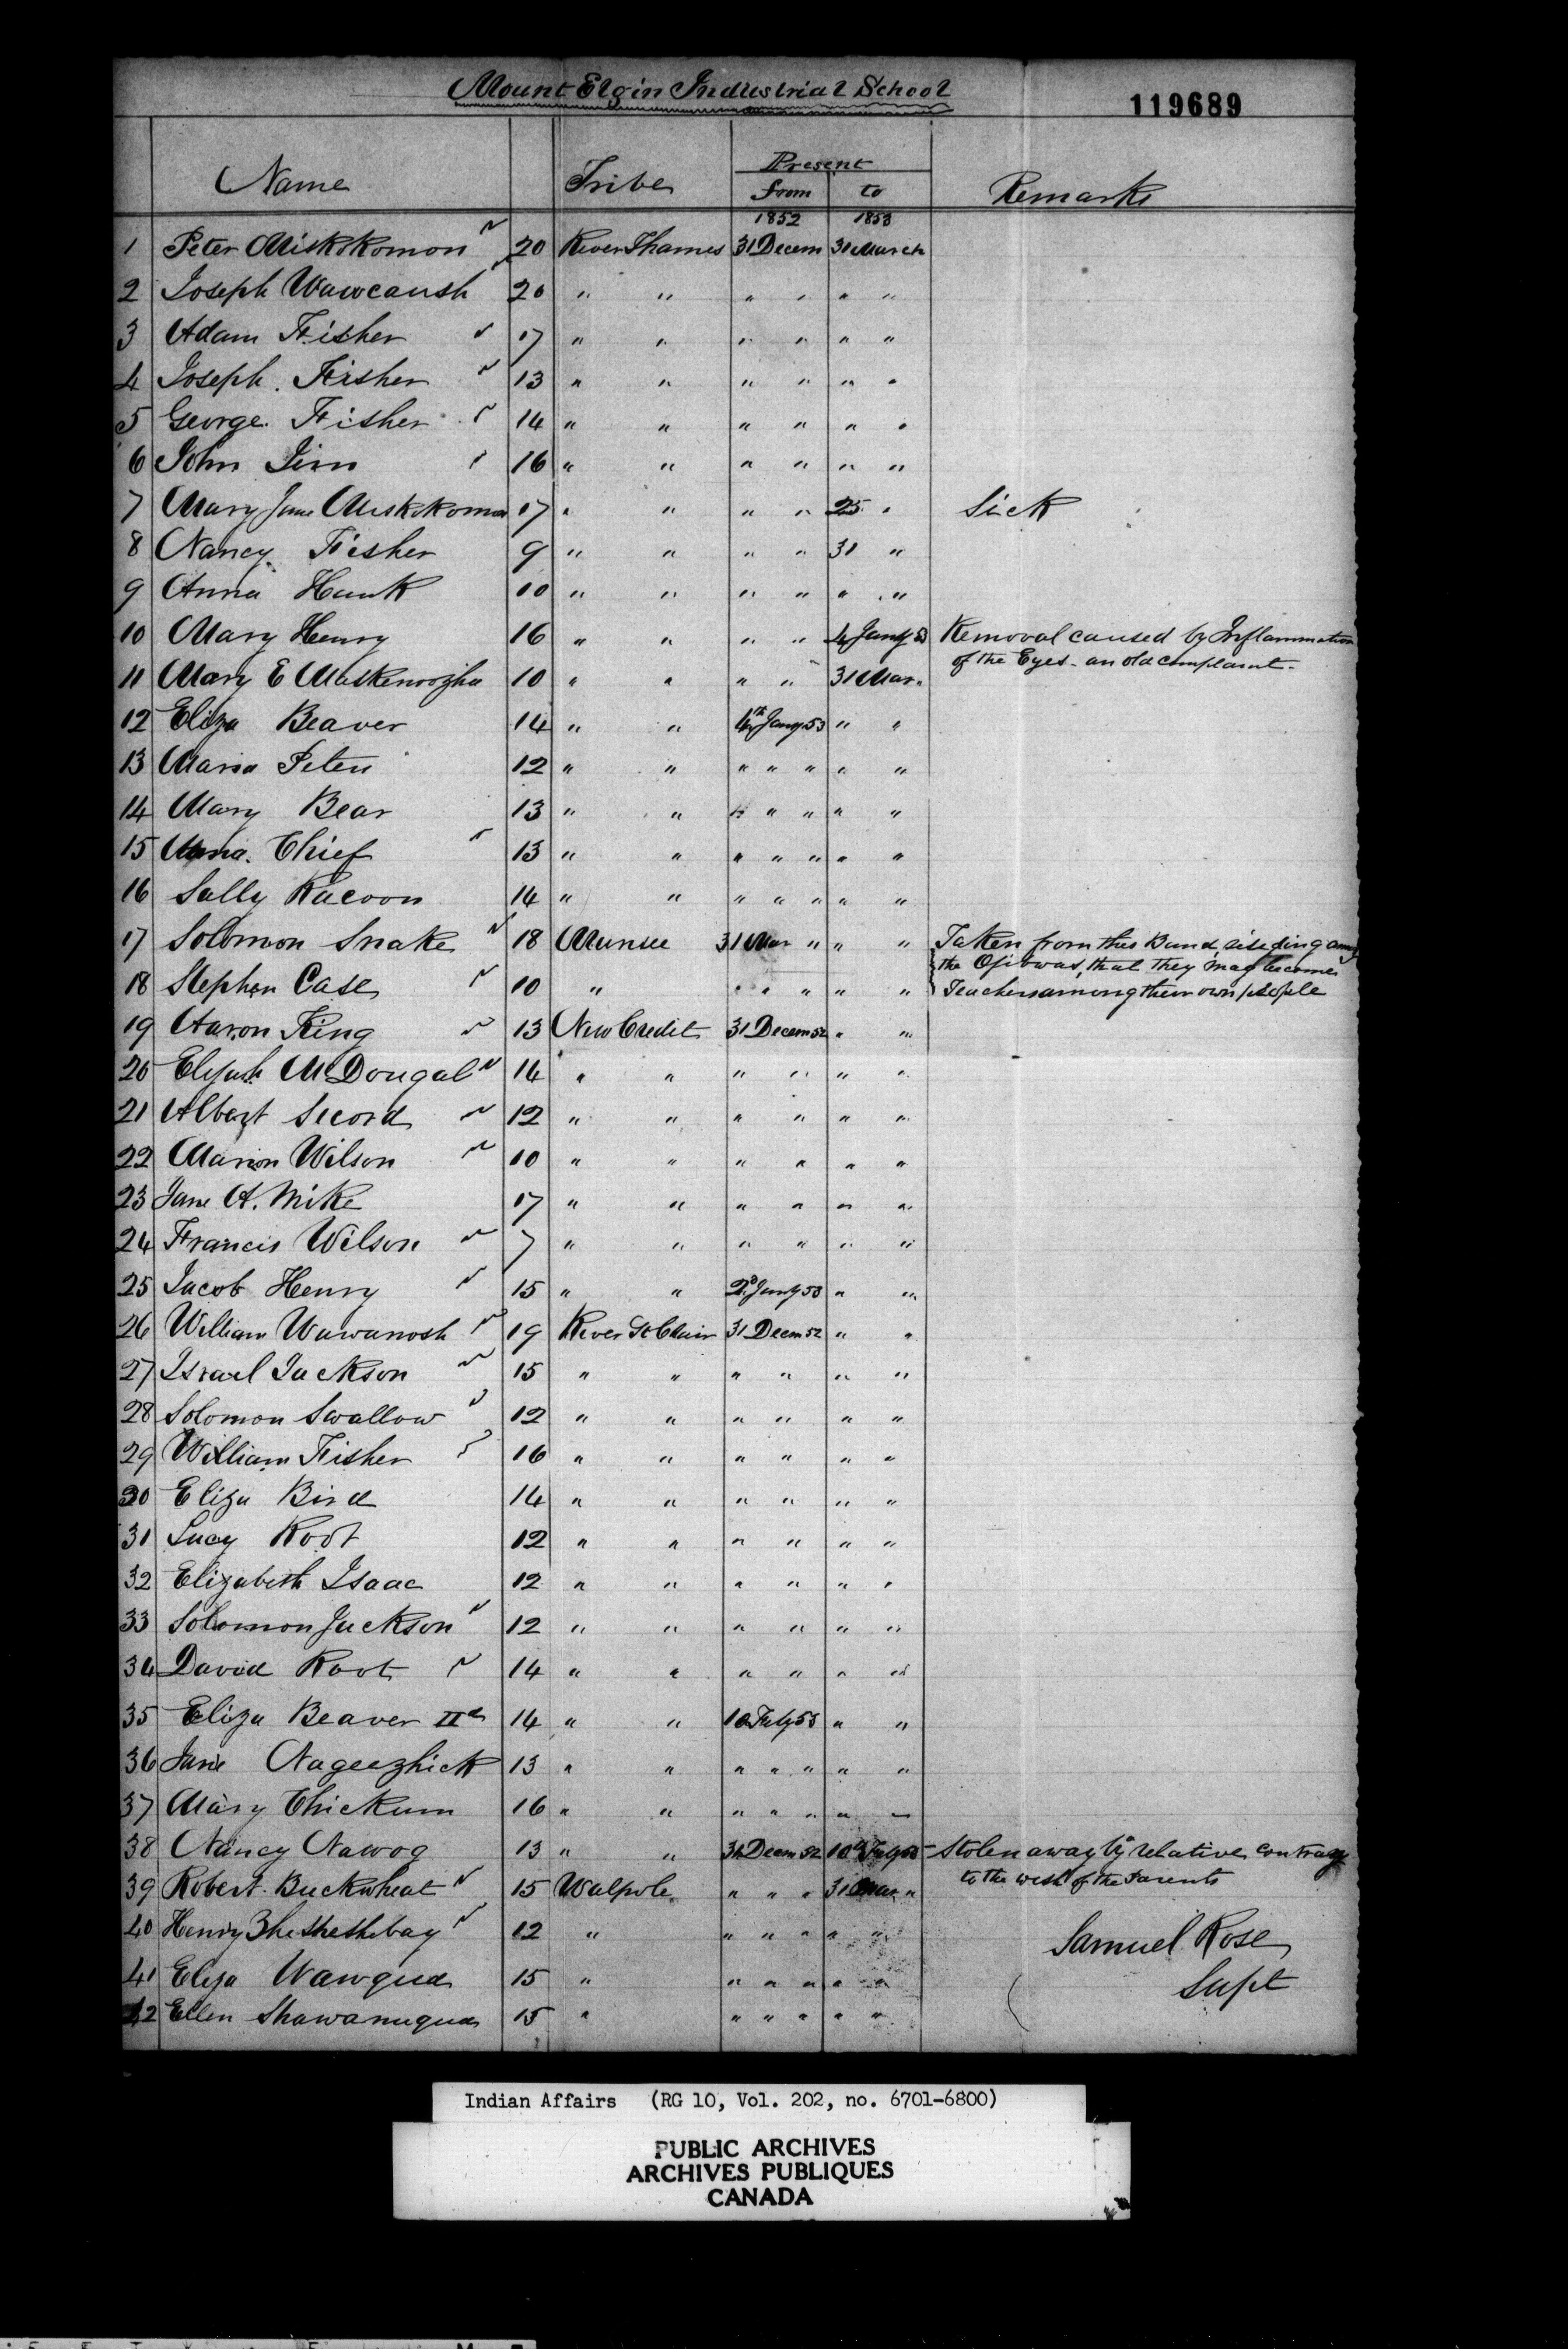 Mount Elgin Industrial School
119689
Name Tribe Present from to Remarks
1852 1853
1 Peter Miskokomon 20 River Thames 31 Decem 31 March
2 Joseph Wawcaush 20 " " " " " "
3 Adam Fisher 17 " " " " " "
4 Joseph Fisher 13 " " " " " "
5 George Fisher 14 " " " " " "
6 John Jim 16 " " " " " "
7 Mary Jane Miskokomon 17 " " " " 25 " Sick
8 Nancy Fisher 9 " " " " 31 "
9 Anna Hank 10 " " " " " "
10 Mary Henry 16 " " " " 4 Jany 53 Removal caused by Inflammation
of the Eyes - an old complaint -
11 Mary E Maskenoozha 10 " " " " 31 Mar "
12 Eliza Beaver 14 " " 4th Jany 53 " "
13 Maria Peter 12 " " " " " " "
14 Mary Bear 13 " " " " " " "
15 Chief 13 " " " " " " "
16 Sally Racoon 14 " " " " " " "
17 Solomon Snake 18 Munsee 31 Mar " " " Taken from this Band, residing among
the Ojibwas, that they may become
18 Stephen Case 10 " " " " " " Teachers among their own people
19 Aaron King 13 New Credit 31 Decem 52 " "
20 Elijah McDougal 14 " " " " " "
21 Albert Secord 12 " " " " " "
22 Marion Wilson 10 " " " " " "
23 Jane A. Mike 17 " " " " " "
24 Francis Wilson 7 " " " " " "
25 Jacob Henry 15 " " 2d Jany 53 " "
26 William Wawanosh 19 River St Clair 31 Decm 52 " "
27 Israel Jackson 15 " " " " " "
28 Solomon Swallow 12 " " " " " "
29 William Fisher 16 " " " " " "
30 Eliza Bird 14 " " " " " "
31 Lucy Root 12 " " " " " "
32 Elizabeth Isaac 12 " " " " " "
33 Solomon Jackson 12 " " " " " "
34 David Root 14 " " " " " "
35 Eliza Beaver IId 14 " " 10 Feby 53 " "
36 Jane Nageezhick 13 " " " " " " "
37 Mary Chickum 16 " " " " " " "
38 Nancy Nawog 13 " " 31 Decm 52 10th Feby 53 Stolen away by relative contrary
to the wish of the Parents
39 Robert Buckwheat 15 Walpole " " " 31 Mar "
40 Henry Zhesheshebay 12 " " " " " "
41 Eliza Wawqua 15 " " " " " "
42 Ellen Shawanuqua 15 " " " " " "
Samuel Rose
Supt
Indian Affairs (RG 10, Vol. 202, no. 6701-6800)
PUBLIC ARCHIVES
ARCHIVES PUBLIQUES
CANADA